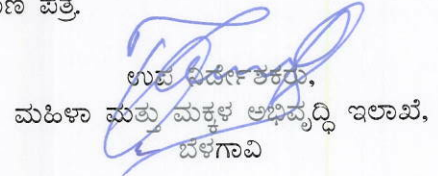 ಪತ್ರ.
ಉಪ ನಿರ್ದೇಶಕರು,
ಮಹಿಳಾ ಮತ್ತು ಮಕ್ಕಳ ಅಭಿವೃದ್ಧಿ ಇಲಾಖೆ,
ಬೆಳಗಾವಿ